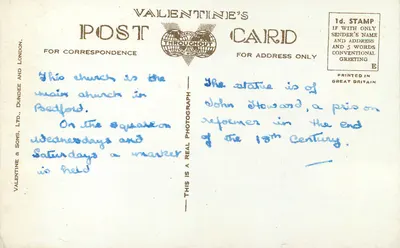 VALENTINE'S
POST CARD
THROUGHOUT
FOR CORRESPONDENCE
FOR ADDRESS ONLY
1d. STAMP
IF WITH ONLY
SENDER'S NAME
AND ADDRESS
AND 5 WORDS
CONVENTIONAL
GREETING.
E
PRINTED IN
GREAT BRITAIN
VALENTINE & SONS, LTD., DUNDEE AND LONDON.
THIS IS A REAL PHOTOGRAPH
This church is the
main church in
Bedford.
On the square on
Wednesdays and
Saturdays a market
is held
The statue is of
John Howard, a prison
reformer in the end
of the 18th Century.